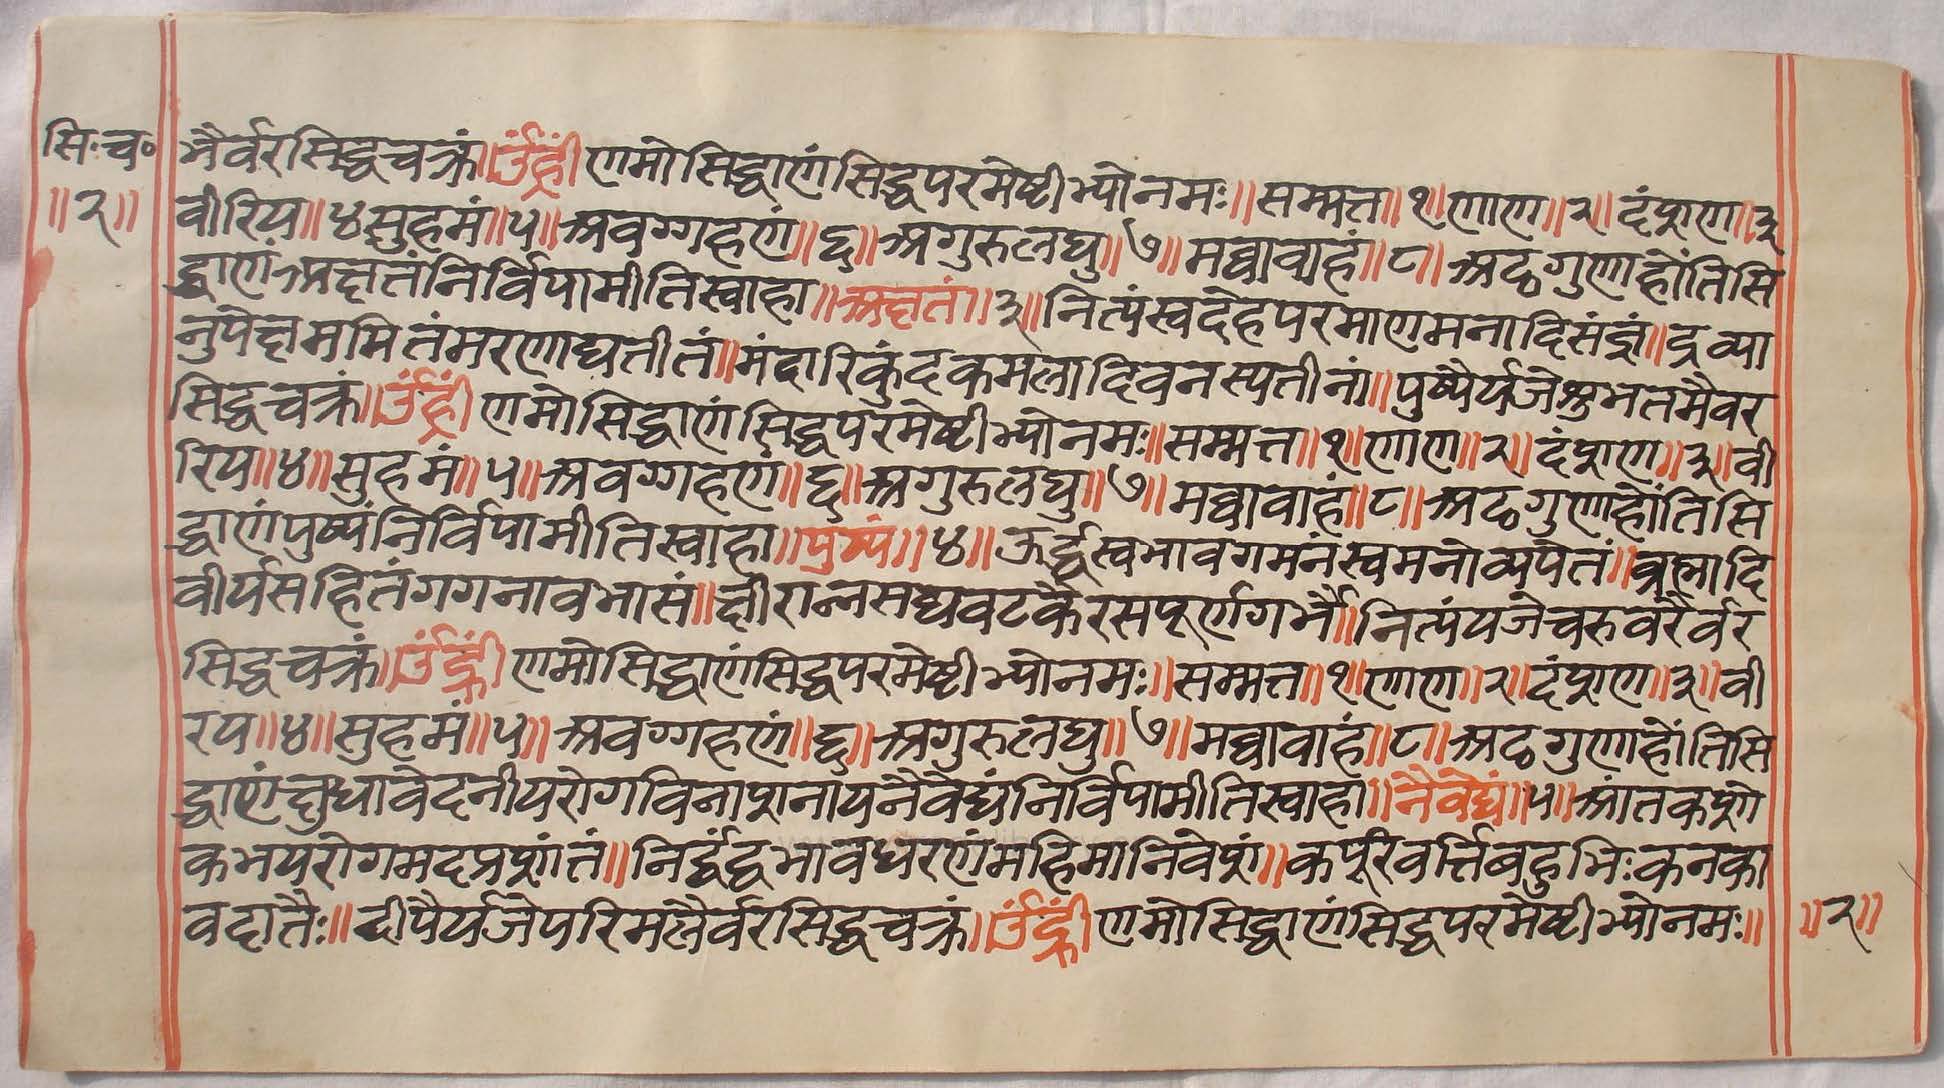 सि·च॰
॥२॥
भैर्वरसिद्धचक्रं॥उंह्रीं णमोसिद्धाणंसिद्धपरमेष्टीभ्योनमः॥सम्मत्त॥१॥णाण॥२॥दंशण॥३
वीरिय॥४सुहमं॥५॥अवग्गहणं॥६॥अगुरुलघु॥७॥मव्वावाहं॥८॥अठगुणाहोंतिसि
द्धाणंअक्षतंनिर्विपामीतिस्वाहा॥अक्षतं॥३॥नित्यंस्वदेहपरमाणमनादिसंज्ञं॥द्रव्या
नुपेक्षममितंमरणाद्यतीतं॥मंदारिकुंदकमलादिवनस्पतीनां॥पुष्पैर्यजेशुभतमैवर
सिद्धचक्रं॥उंह्रीं णमोसिद्धाणंसिद्धपरमेष्टीभ्योनमः॥सम्मत्त॥१॥णाण॥२॥दंशण॥३॥वी
रिय॥४॥सुहमं॥५॥अवग्गहणं॥६॥अगुरुलघु॥७॥मव्वावाहं॥८॥अठगुणाहोंतिसि
द्धाणंपुष्पंनिर्विपामीतिस्वाहा॥पुष्पं॥४॥ऊर्द्धस्वभावगमनंस्वमनोव्यपेतं॥ब्रह्मादि
वीर्यसहितंगगनावभासं॥क्षीरान्नसद्यवटकैरसपूर्णगर्भै॥नित्यंयजेचरुवरैर्वर
सिद्धचक्रं॥उंह्रीं णमोसिद्धाणंसिद्धपरमेष्टीभ्योनमः॥सम्मत्त॥१॥णाण॥२॥दंशण॥३॥वी
रय॥४॥सुहमं॥५॥अवग्गहणं॥६॥अगुरुलघु॥७॥मव्वावाहं॥८॥अठगुणाहोंतिसि
द्धाणंक्षुधावेदनीयरोगविनाशनायनैवेद्यंनिर्विपामीतिस्वाहा॥नैवेद्यं॥५॥आंतकशो
कभयरोगमदप्रशांतं॥निर्द्वंद्वभावधरणंमहिमानिवेशं॥कर्पूरवर्त्तिबहुभिःकनका
वदातैः॥दीपैर्यजेपरिमलैर्वरसिद्धचक्रं॥उंह्रीं णमोसिद्धाणंसिद्धपरमेष्टीभ्योनमः॥
॥२॥